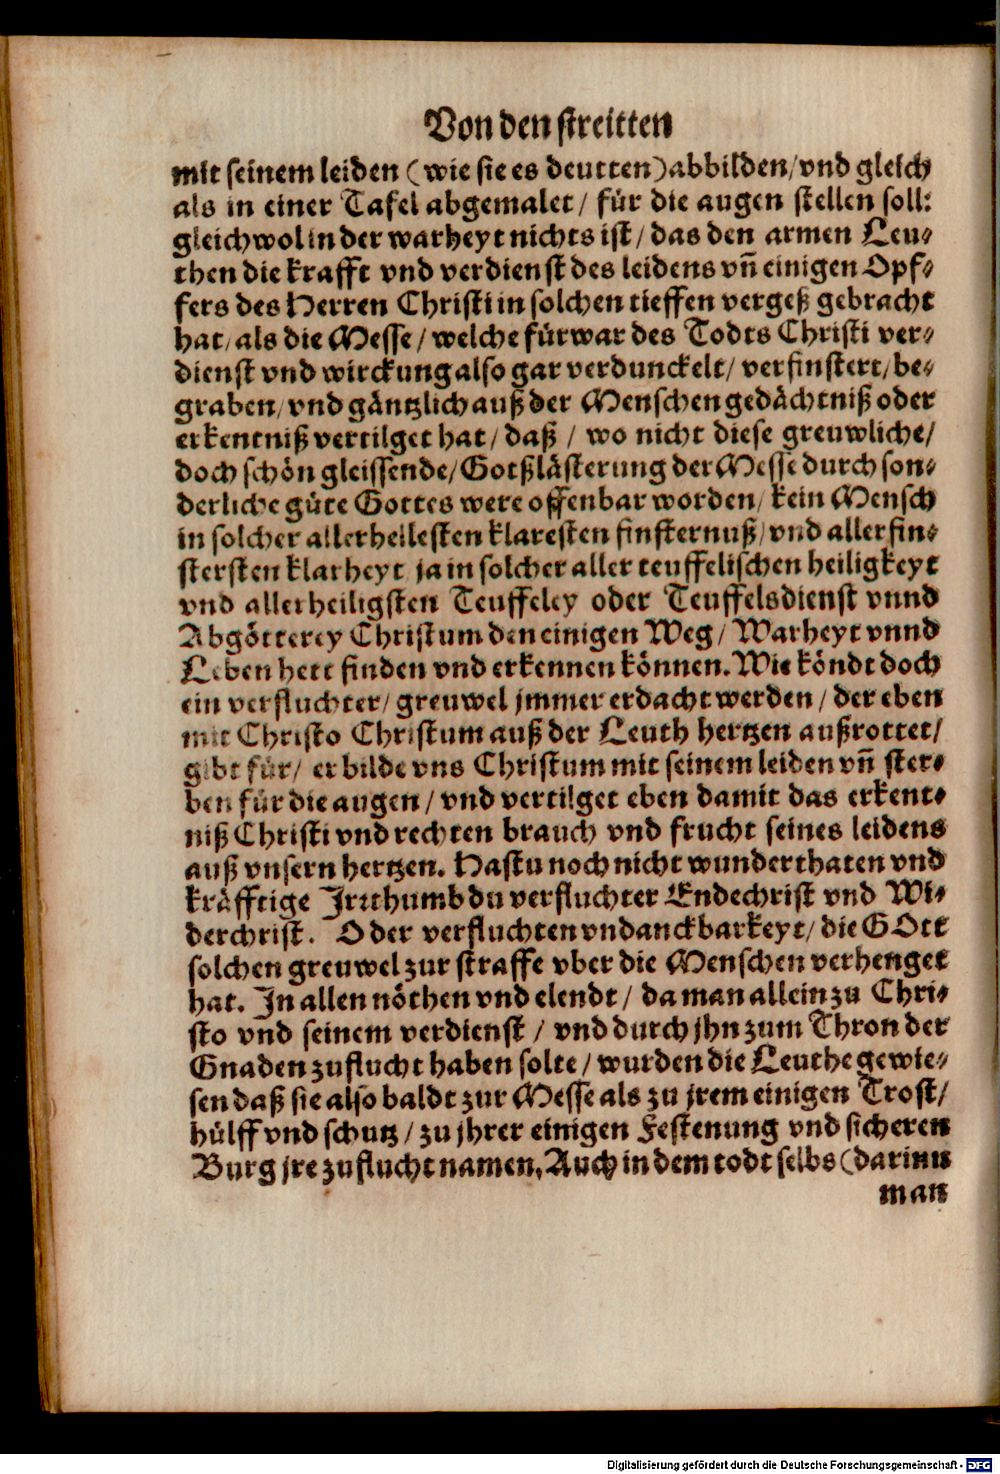 Von den streitten
mit seinem leiden (wie sie es deutten) abbilden/ vnd gleich
als in einer Tafel abgemalet / für die augen stellen soll:
gleichwol in der warheyt nichts ist / das den armen Leu-
then die krafft vnd verdienst des leidens vñ einigen Opf-
fers des Herren Christi in solchen tieffen vergeß gebracht
hat/ als die Messe / welche fürwar des Todts Christi ver-
dienst vnd wirckung also gar verdunckelt/ verfinstert/ be-
graben/ vnd gäntzlich auß der Menschen gedächtniß oder
erkentniß vertilget hat/ daß / wo nicht diese greuwliche/
doch schön gleissende/ Gotßlästerung der Messe durch son-
derliche güte Gottes were offenbar worden/ kein Mensch
in solcher allerhellesten klaresten finsternuß/ vnd allerfin-
stersten klarheyt ja in solcher aller teuffelischen heiligkeyt
vnd allerheiligsten Teuffeley oder Teuffelsdienst vnnd
Abgötterey Christum den einigen Weg/ Warheyt vnnd
Leben hett finden vnd erkennen können. Wie köndt doch
ein verfluchter/ greuwel jmmer erdacht werden / der eben
mit Christo Christum auß der Leuth hertzen außrottet/
gibt für/ er bilde vns Christum mit seinem leiden vñ ster-
ben für die augen / vnd vertilget eben damit das erkent-
niß Christi vnd rechten brauch vnd frucht seines leidens
auß vnsern hertzen. Hastu noch nicht wunderthaten vnd
kräfftige Jrrthumb du verfluchter Endechrist vnd Wi-
derchrist. O der verfluchten vndanckbarkeyt/ die GOtt
solchen greuwel zur straffe vber die Menschen verhenget
hat. In allen nöthen vnd elendt / da man allein zu Chri-
sto vnd seinem verdienst / vnd durch jhn zum Thron der
Gnaden zuflucht haben solte / wurden die Leuthe gewie-
sen daß sie also baldt zur Messe als zu jrem einigen Trost/
hülff vnd schutz / zu jhrer einigen Festenung vnd sicheren
Burg jre zuflucht namen, Auch in dem todt selbs (darinn
man
Digitalisierung gefördert durch die Deutsche Forschungsgemeinschaft - DFG